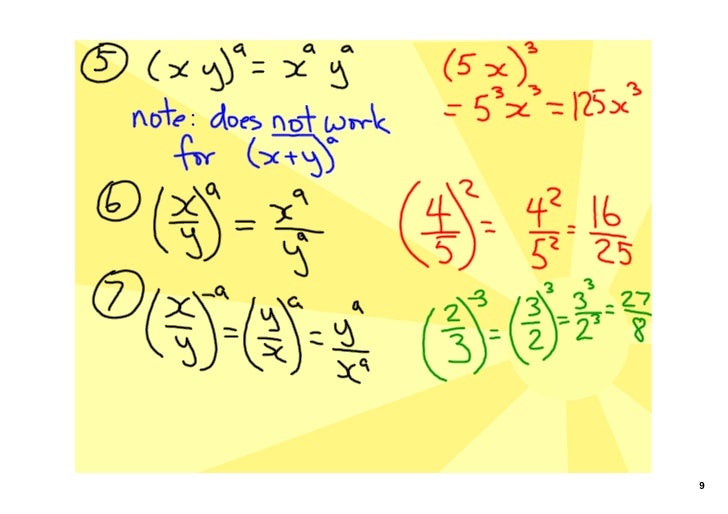 ⑤ (x y)^a = x^a y^a    (5x)^3
= 5^3 x^3 = 125x^3
note: does not work
for (x+y)^a
⑥ (x/y)^a = x^a/y^a    (4/5)^2 = 4^2/5^2 = 16/25
⑦ (x/y)^-a = (y/x)^a = y^a/x^a    (2/3)^-3 = (3/2)^3 = 3^3/2^3 = 27/8
9